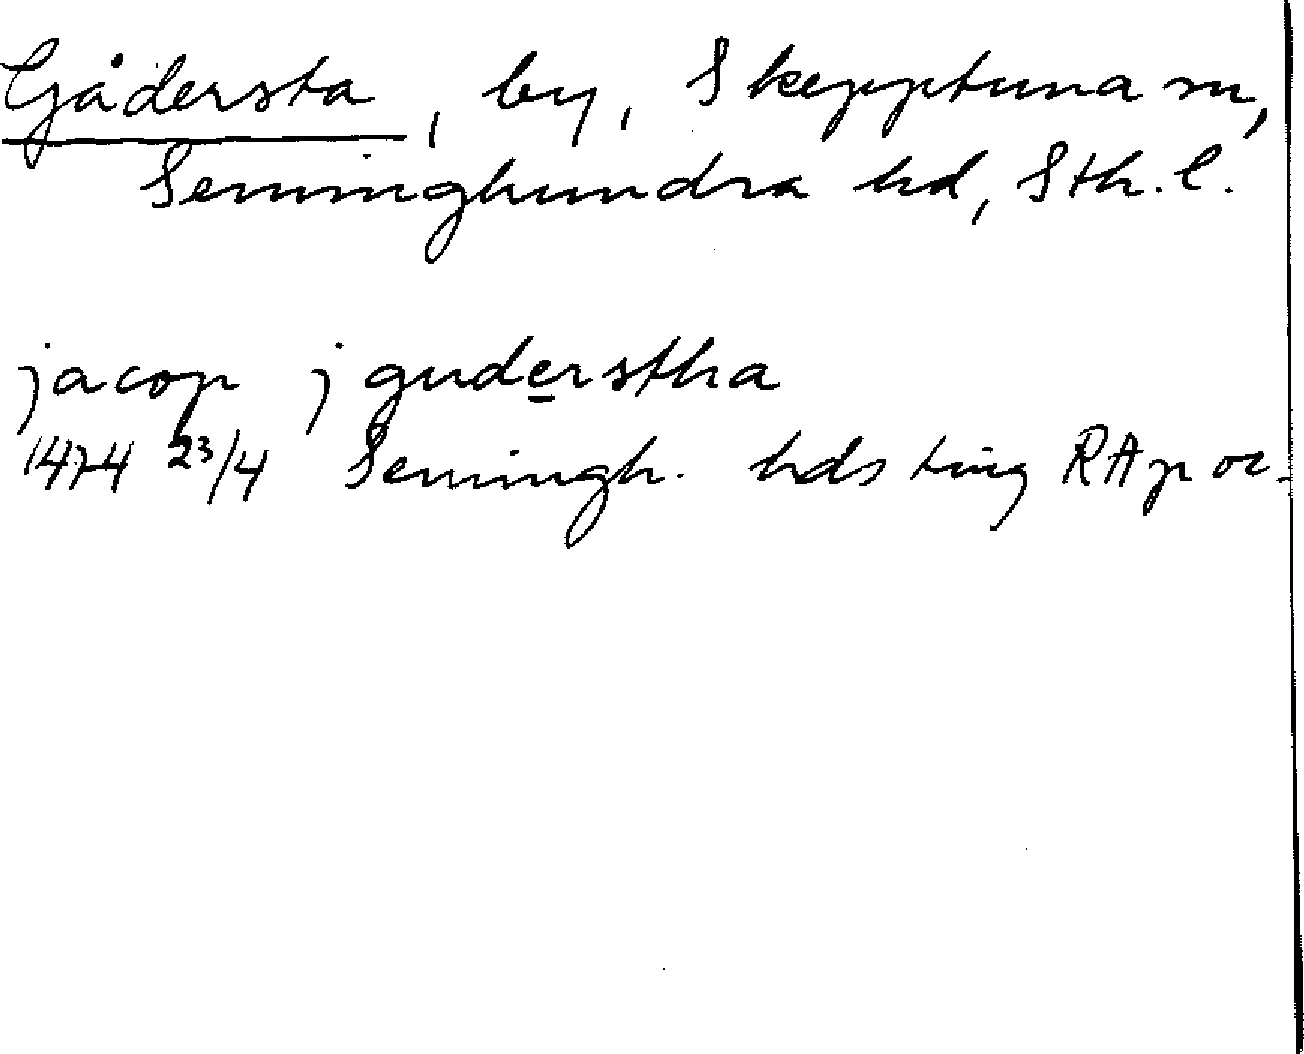 Gådersta, by, Skepptuna sn,
Seminghundra hd, Sth. l.
jacop j guderstha
1474 23/4 Semingh. hds ting RAp or.